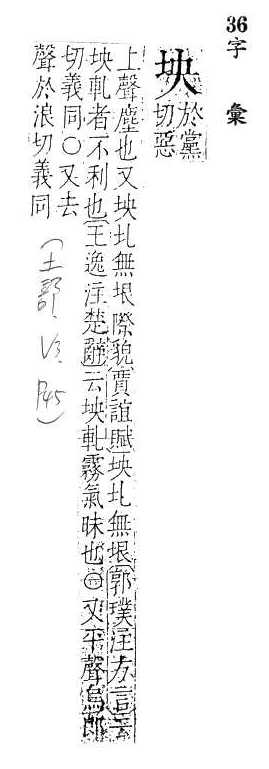 36字 彙
坱
於黨
切惡
上聲塵也又坱圠無垠際貌賈誼賦坱圠無垠郭璞注方言云
坱軋者不利也王逸注楚辭云坱軋霧氣昧也○又平聲烏郎
切義同○又去
聲於浪切義同
(土部
P45)